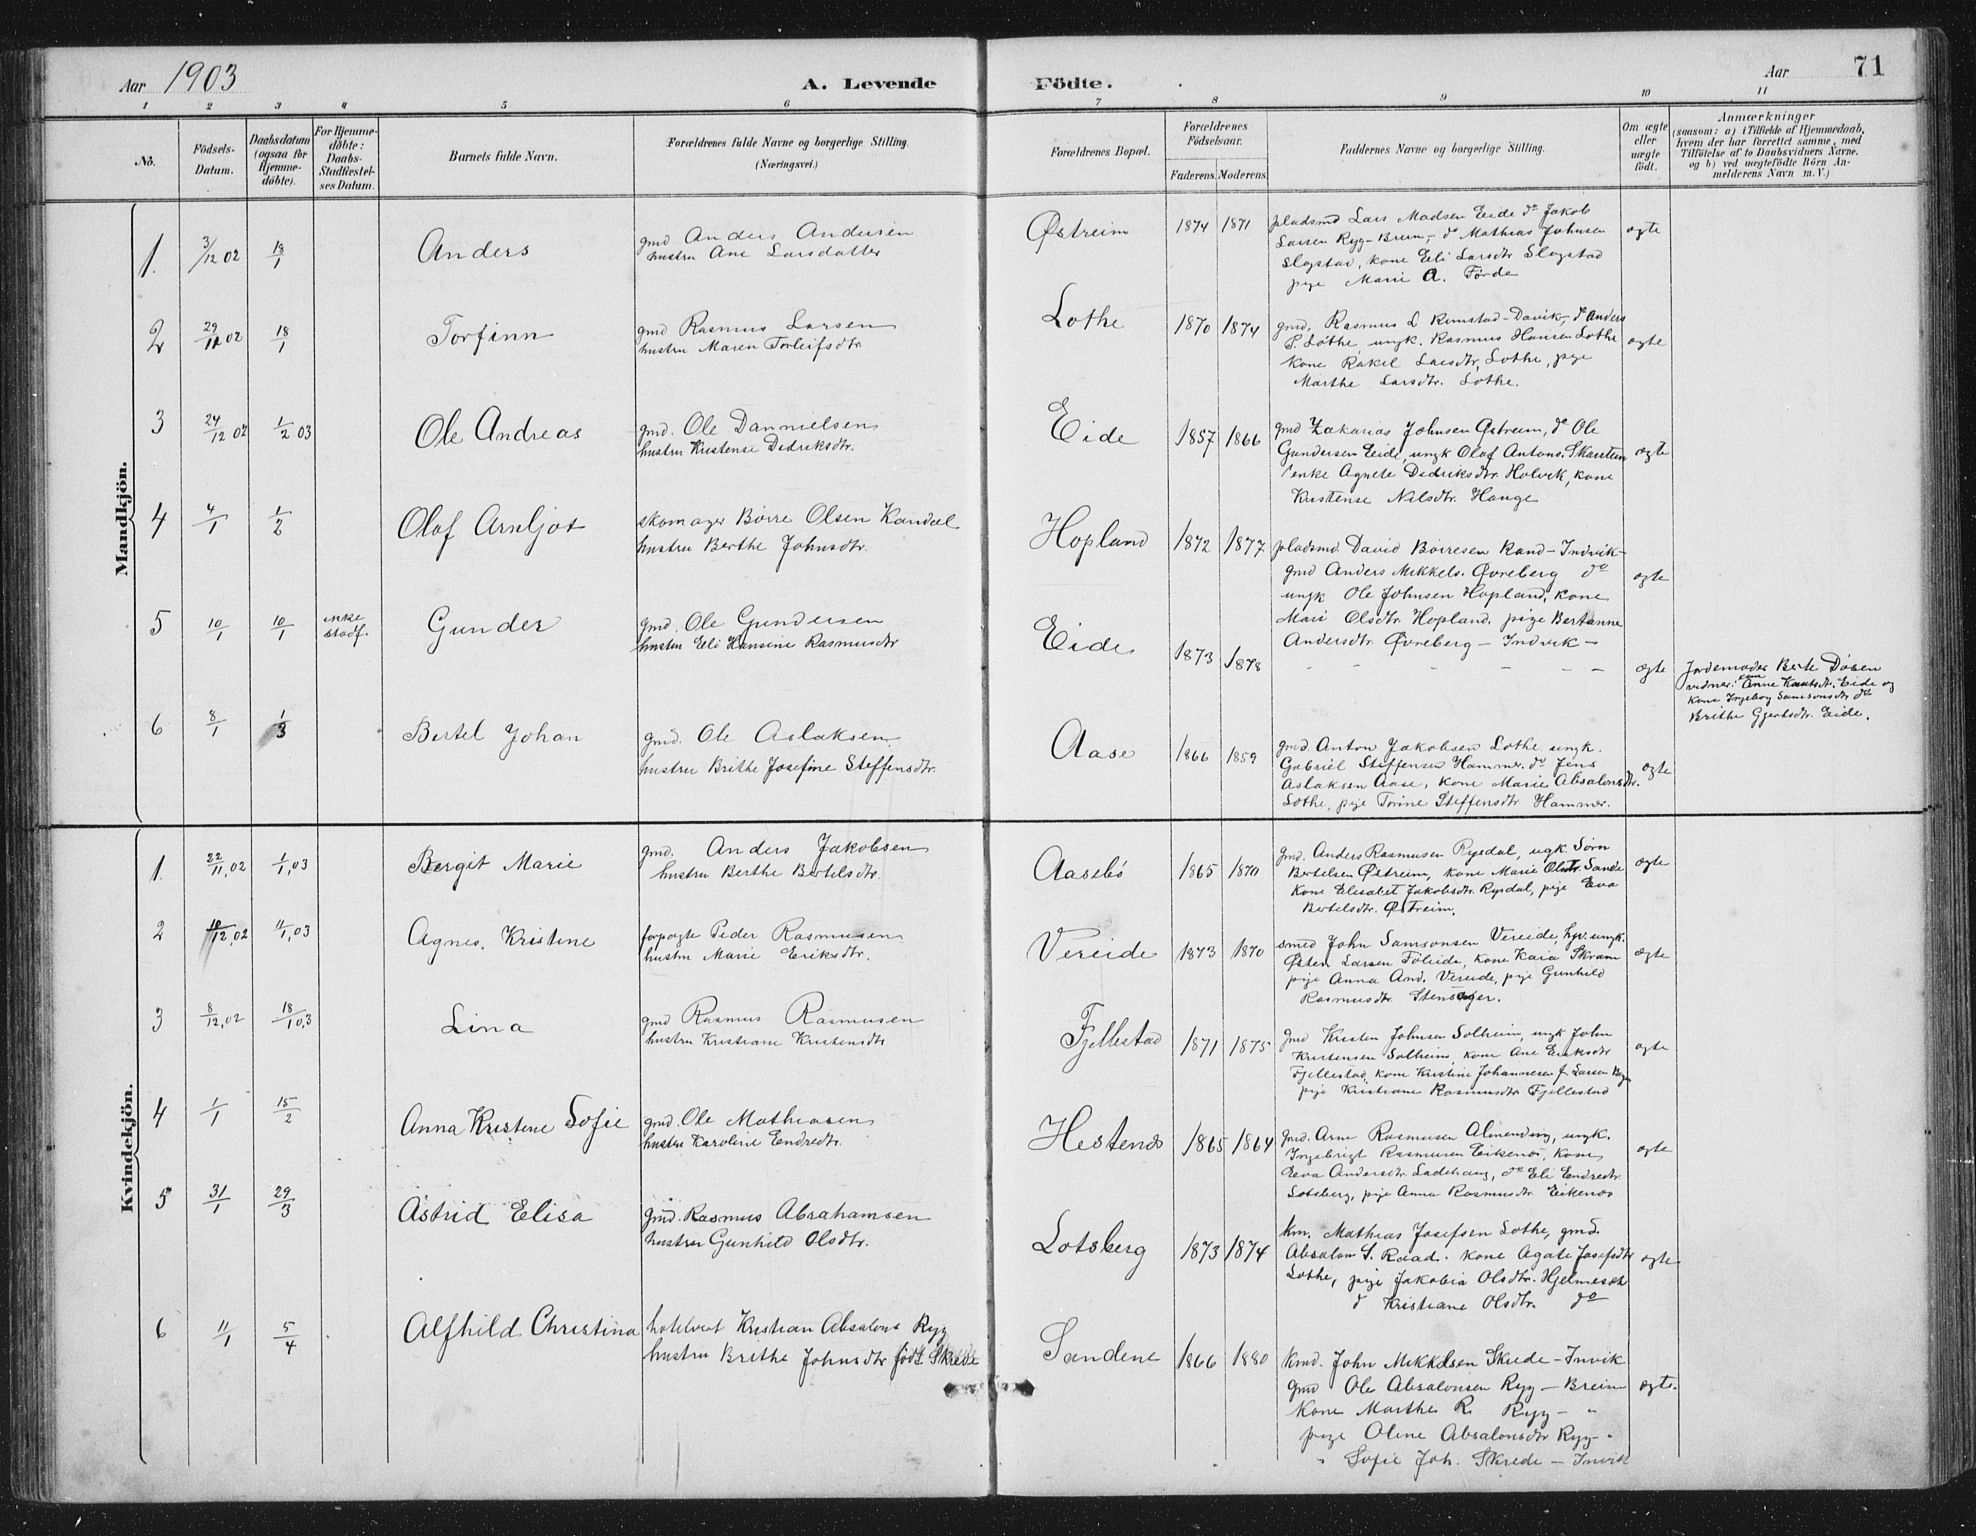 Aar 1903 A. Levende Födte. Aar 71
1 2 3 4 5 6 7 8 9 10 11
No.
Födsels-Datum.
Daabsdatum (ogsaa for Hjemme-döbte).
For Hjemme-döbte: Daabs-Stadfæstel-ses Datum.
Barnets fulde Navn.
Forældrenes fulde Navne og borgerlige Stilling. (Næringsvei.)
Forældrenes Bopæl.
Forældrenes Födselsaar.
Faderens. Moderens.
Faddernes Navne og borgerlige Stilling.
Om ægte eller uægte födt.
Anmærkninger
(saasom: a) i Tilfælde af Hjemmedaab,
hvem der har forrettet samme, med
Tilföielse af to Daabsvidners Navne.
og b) ved uægtefödte Börn An-
melderens Navn m. V.)
Mandkjön.
1. 3/12 02 18/1 Anders
gmd Anders Andersen
hustru Ane Larsdatter
Østreim 1874 1871
pladsmd Lars Madsen Eide do Jakob
Larsen Ryg-Breim, do Mathias Johnsen
Slagstad, kone Eli Larsdtr Slagstad
pige Marie A. Førde
ægte
2 29/11 02 18/1 Torfinn
gmd Rasmus Larsen
hustru Maren Torleifsdtr
Lothe 1870 1874
gmd. Rasmus L Rimstad-Davik, do Anders
P. Lothe, ungk. Rasmus Hansen Lothe
kone Rakel Larsdtr, Lothe, pige
Marthe Larsdtr. Lothe.
ægte
3 24/12 02 1/2 03 Ole Andreas
gmd. Ole Dannielsen
hustru Kristense Didriksdtr.
Eide 1857 1866
gmd Zakarias Johnsen Østreim, do Ole
Gundersen Eide, ungk Olaf Antons. Skarstein
enke Agnete Didriksdtr Holvik, kone
Kristense Nilsdtr. Hauge
ægte
4 4/1 1/2 Olaf Arneljot
skomager Børre Olsen Kandal
hustru Berthe Johnsdtr.
Hopland 1872 1877
pladsmd. David Børresen Rand-Indvik-
gmd Anders Mikkels. Øvreberg do
ungk Ole Johnsen Hopland, kone
Mari Olsdtr. Hopland. pige Bertanne
Andersdtr. Øvreberg - Indvik -
ægte
5 10/1 10/1 ikke stadf. Gunder
gmd. Ole Gundersen
hustru Eli Hansine Rasmusdtr
Eide 1873 1878
- - - - - -
ægte
Jordemoder Berte Døsen
vidner: kone Anne Knutsdtr. Eide og
kone Ingebor Samsonsdtr do
Brithe Gjertsdtr. Eide.
6 8/1 1/3 Bertel Johan
gmd. Ole Aslaksen
hustru Brithe Josefine Steffensdtr.
Aase 1866 1859
gmd. Anton Jakobsen Lothe ungk.
Gabriel Steffensen Hammer. do Jens
Aslaksen Aase, kone Marie Absalonsdtr.
Lothe, pige Torine Steffensdtr Hammer.
ægte
Kvindekjön.
1. 22/11, 02 1/1, 03 Bergit Marie
gmd. Anders Jakobsen
hustru Berthe Bertelsdtr.
Aasebø 1865 1870
gmd. Anders Rasmusen Rysdal, ugk. Sørn
Bertelsen Østreim, kone Marie Olsdtr. Sande
kone Elisabet Jakobsdtr. Rysdal, pige Eva
Bertelsdtr. Østreim.
ægte
2 12, 02 11/1, 03 Agnes. Kristine
forpagte Peder Rasmusen
hustru Marie Eriksdtr.
Vereide 1873 1870
smed John Samsonsen Vereide, hjv. ungk.
Østen Larsen Føleide, kone Kara Skram
pige Anna And. Vereide, pige Gunhild
Rasmusdtr. Stensager.
ægte
3 8/12, 02 18/1 0,3 Lina
gmd Rasmus Rasmusen
hustru Kristiane Kristensdtr
Fjellestad 1871 1875
gmd Kristen Johnsen Solheim, ungk John
Kristensen Solheim, kone Ane Eriksdtr
Fjellestad, kone Kristine Johannesen f. Larsen
pige Kristiane Rasmusdtr Fjellestad
ægte
4 1/1 15/2 Anna Kristine Sofie
gmd. Ole Mathiasen
hustru Karoline Endredtr.
Hestenes 1865 1864
gmd. Arne Rasmusen Almending, ungk.
Ingebrigt Rasmusen Eikenes, kone
Eva Andersdtr Ladehaug, do Eli Endredtr.
Lotsberg, pige Anna Rasmusdtr. Eikenes
ægte
5 31/1 29/3 Astrid Elisa
gmd. Rasmus Abrahamsen
hustru Gunhild Olsdtr.
Lotsberg 1873 1874
km. Mathias Josefsen Lothe, gmd.
Absalon S. Raad. kone Agate Josefsdtr
Lothe, pige Jakobia Olsdtr. Hjelmeset
d Kristiane Olsdtr. do
ægte
6 11/1 5/4 Alfhild Christina
hotelvert Kristian Absalons Ryg
hustru Brithe Johnsdtr født Skrede
Sandene 1866 1880
kmd. John Mikkelsen Skrede - Invik
gmd Ole Absalonsen Ryg - Breim
kone Marthe R. Ryg - "
pige Oline Absalonsdtr Ryg - "
" Sofie Joh. Skrede - Invik
ægte.